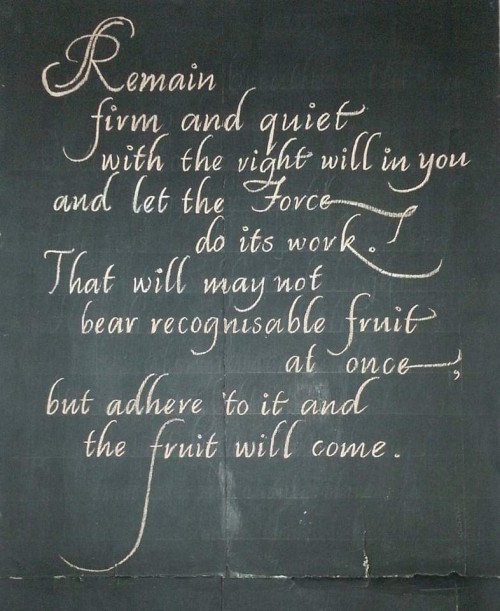 Remain
firm and quiet
with the right will in you
and let the Force
do its work.
That will may not
bear recognisable fruit
at once,
but adhere to it and
the fruit will come.